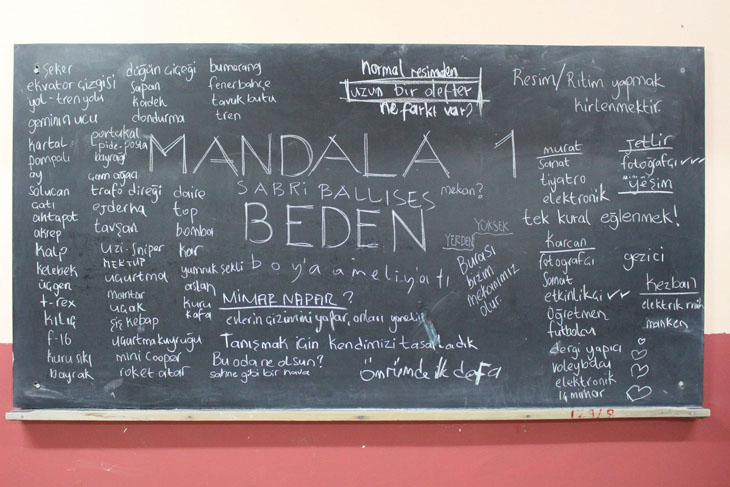 şeker
ekvator çizgisi
yol - tren yolu
geminin ucu
kartal
pompalı
ay
solucan
çatı
ahtapot
akrep
kalp
kelebek
üçgen
t-rex
kılıç
f-16
kuru sıkı
bayrak
düğün çiçeği
sapan
kadeh
dondurma
portakal
pide-pasta
bayrağı
çam ağacı
trafo direği
ejderha
tavşan
uzi-sniper
mektup
uçurtma
mantar
uçak
şiş kebap
uçurtma kuyruğu
mini cooper
roket atar
bumerang
fenerbahçe
tavuk butu
tren
daire
top
bomba
kar
yumruk şekli
aslan
kuru
kafa
normal resimden
uzun bir defter
ne farkı var?
Resim/Ritim yapmak
kirlenmektir
MANDALA 1
SABRİ BALLISES
mekan?
BEDEN
YÜKSEK
YERDEN
boya ameliyatı
Burası
bizim
mekanımız
olur.
MİMAR NAPAR?
evlerin çizimini yapar, onları yönetir
Tanışmak için kendimizi tasarladık
Bu oda ne olsun?
sahne gibi bir hava
ömrümde ilk defa
murat
sanat
tiyatro
elektronik
Jetlir
fotoğrafçı ✓✓✓
Yeşim
tek kural eğlenmek!
karcan
fotoğrafçı
sanat
etkinlikçi ✓✓
öğretmen
futbolcu
gezici
kezban
elektrik
manken
dergi yapıcı
voleybolcu
elektronik
iç mimar